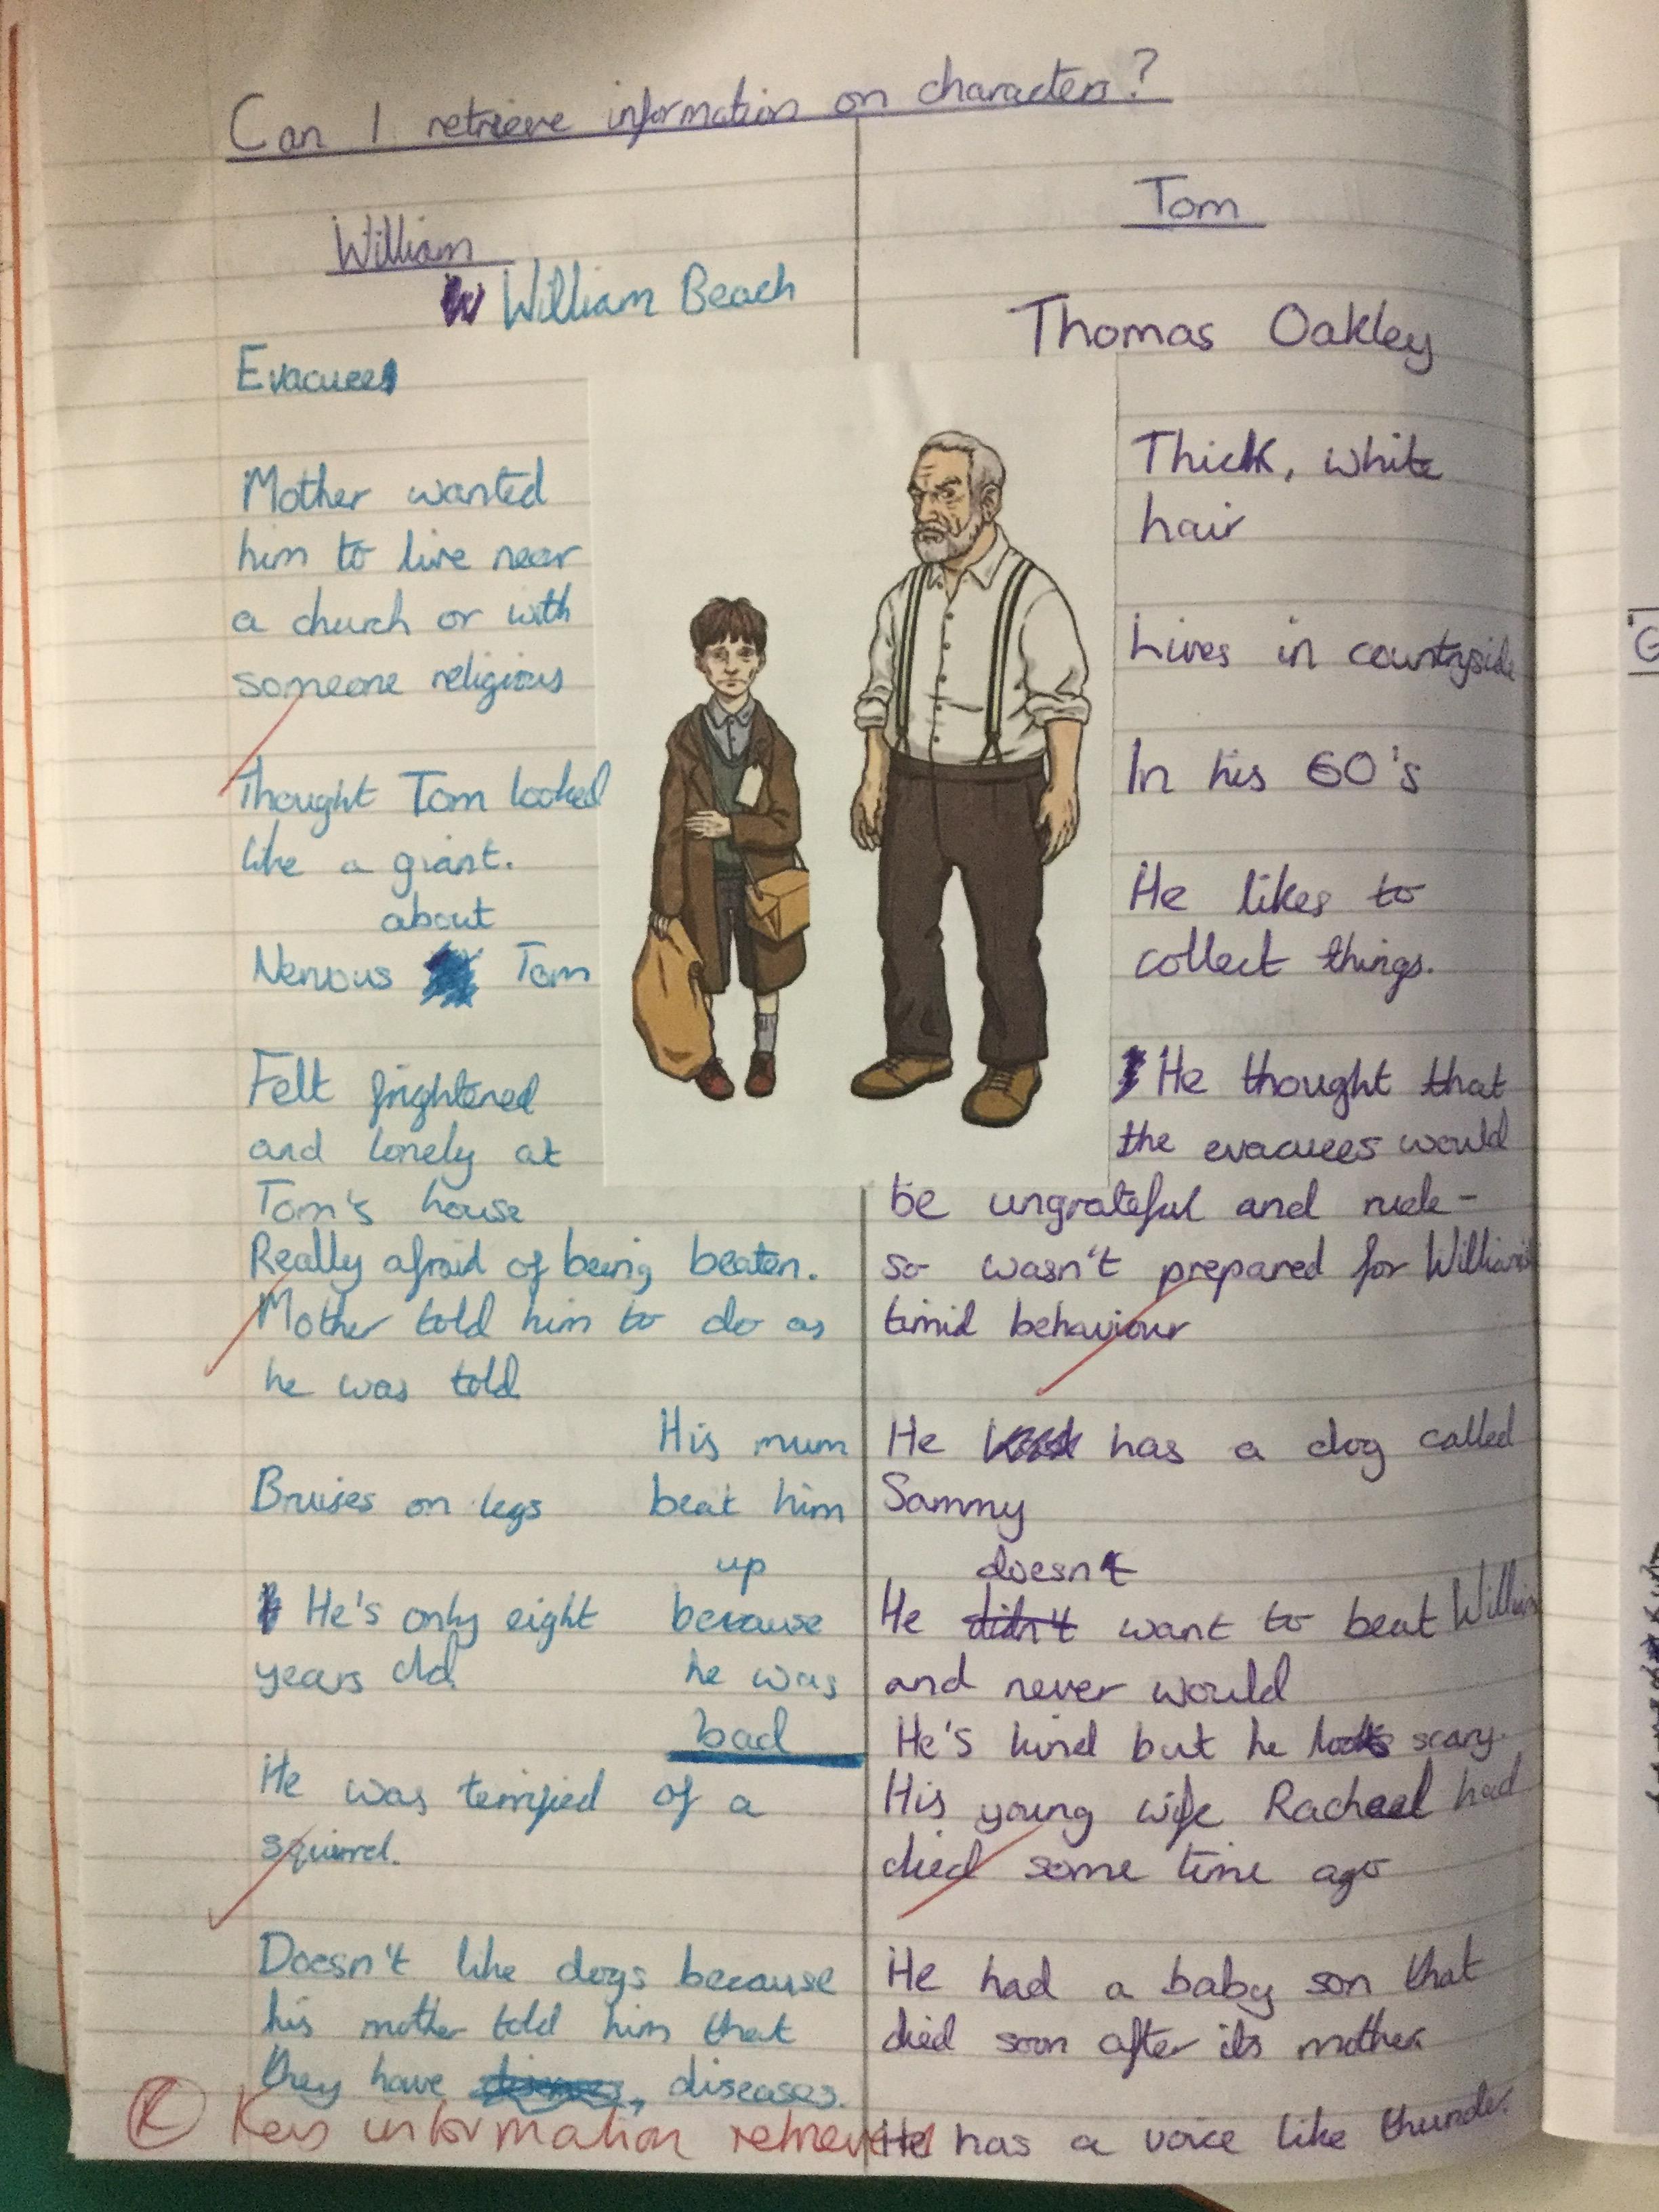 Can I retrieve information on characters?
William
William Beach
Evacuee
Mother wanted
him to live near
a church or with
someone religious
Thought Tom looked
like a giant.
about
Nervous Tom
Felt frightened
and lonely at
Tom's house
Really afraid of being beaten.
Mother told him to do as
he was told
Bruises on legs
He's only eight
years old.
His mum
beat him
up
because
he was
bad
He was terrified of a
squirrel.
Doesn't like dogs because
his mother told him that
they have diseases.
Tom
Thomas Oakley
Thick, white
hair
Lives in countryside
In his 60's
He likes to
collect things.
He thought that
the evacuees would
be ungrateful and rude-
so wasn't prepared for William's
timid behaviour
He has a dog called
Sammy
doesn't
He didn't want to beat William
and never would
He's kind but he looks scary.
His young wife Rachael had
died some time ago
He had a baby son that
died soon after its mother.
He has a voice like thunder.
Key information retrieved